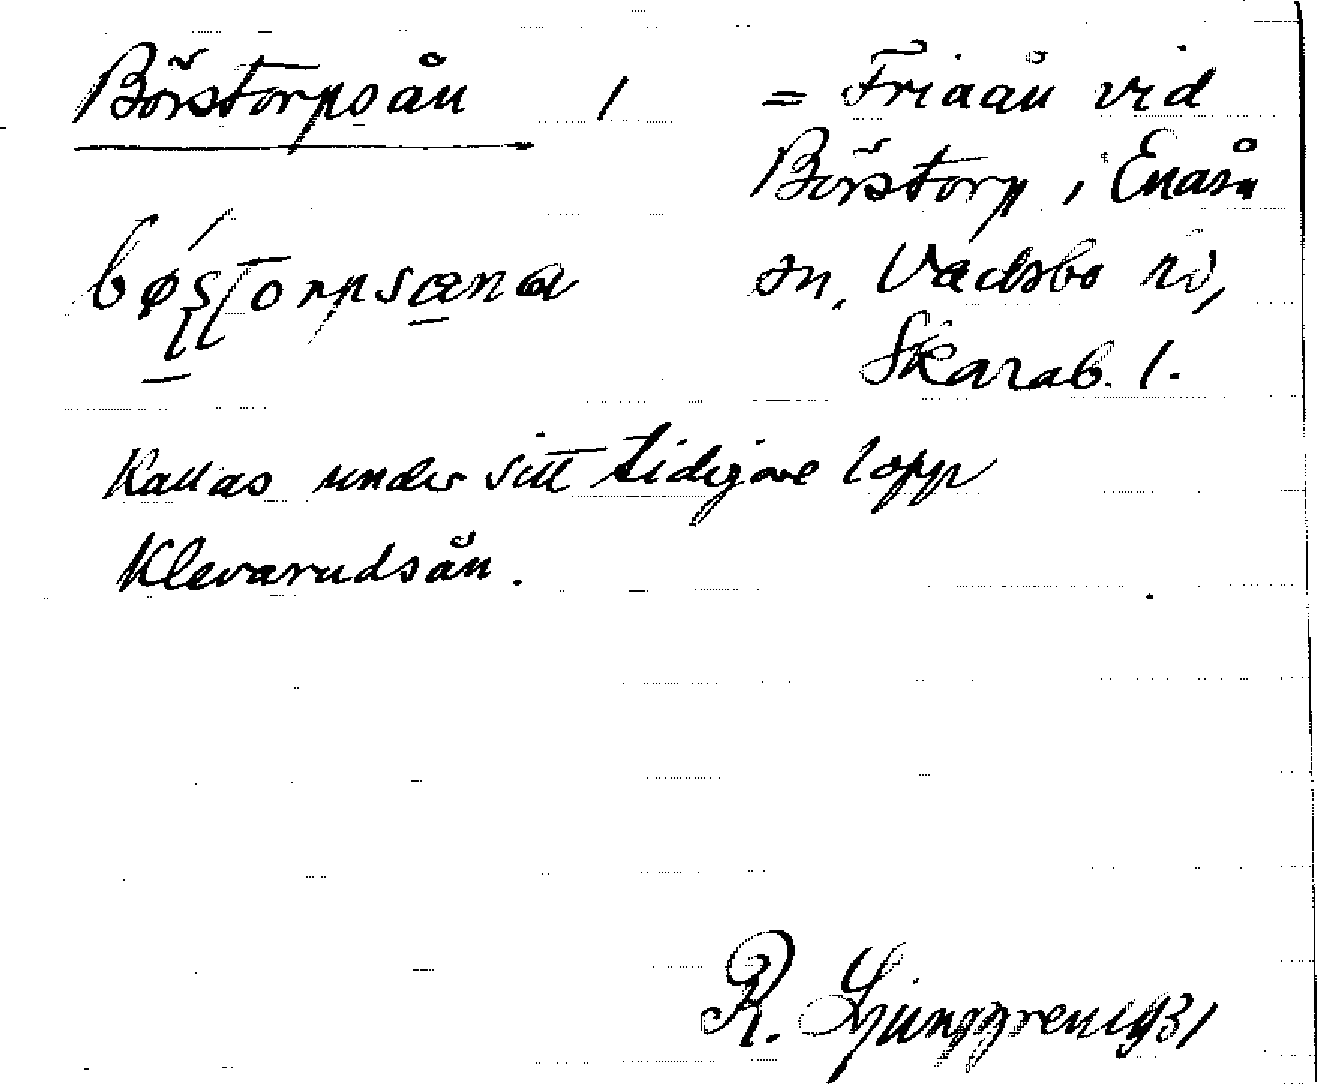 Börstorpsån / = Friaån vid
Börstorp i Enåsa
sn, Vadsbo hd,
Skarab. l.
Kallas under sitt tidigare lopp
Klevarudsån.
R. Ljunggren 1931